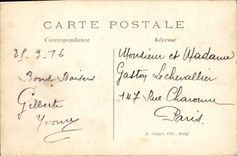 CARTE POSTALE
Correspondance
Adresse
25-9-16
Bons Baisers
Gilbert
Yvonne
Monsieur et Madame
Gaston Lechevallier
147 Rue Charonne
Paris.